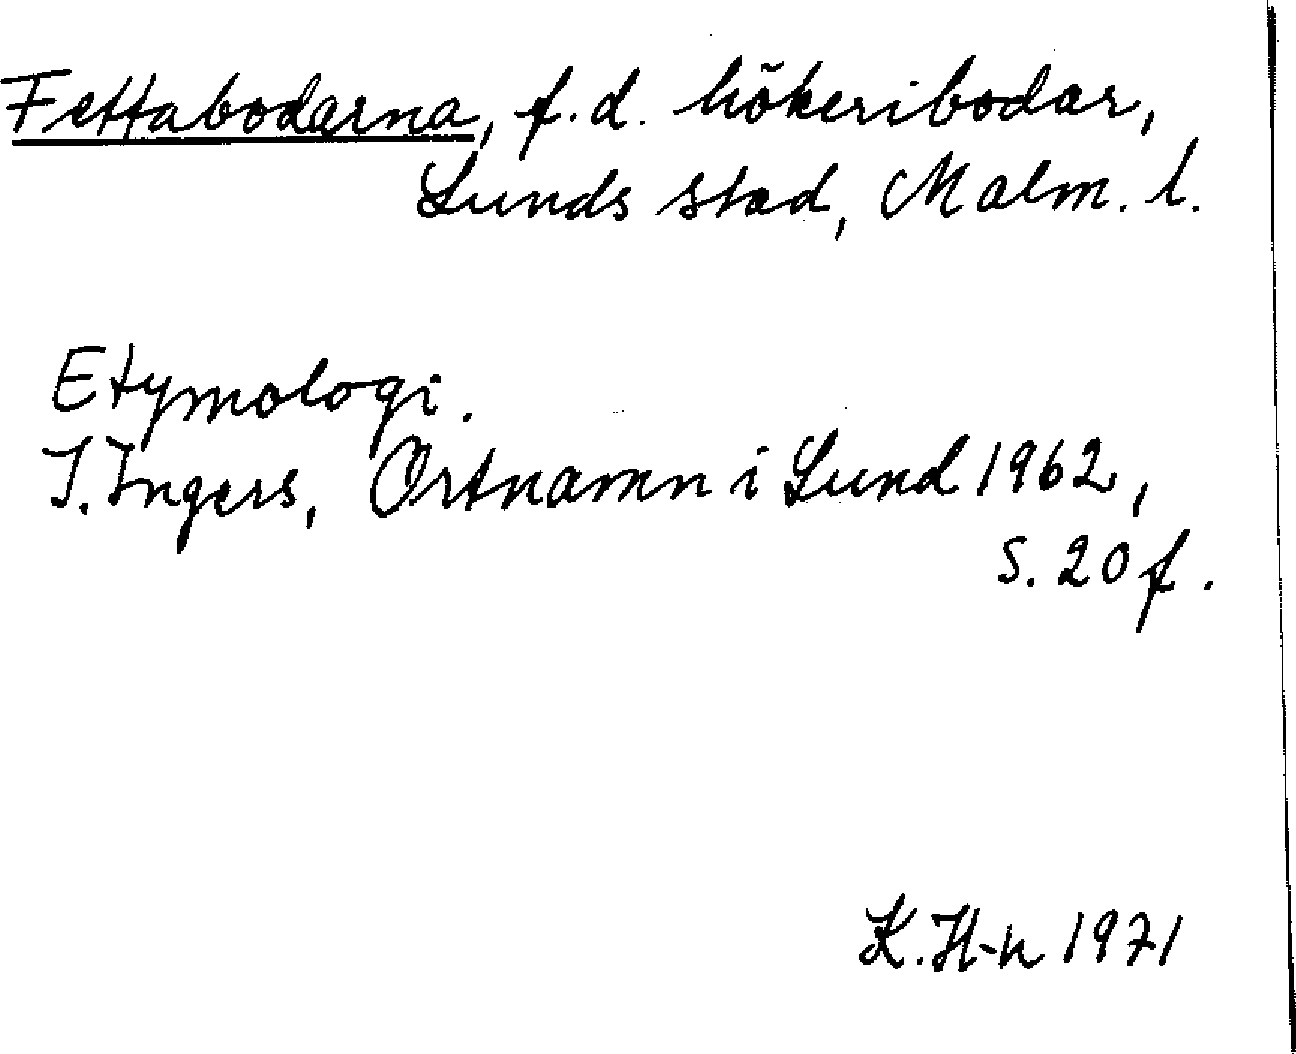 Fettabodarna, f.d. hökeribodar,
Lunds stad, Malm. l.
Etymologi.
I. Ingers, Ortnamn i Lund 1962,
s. 20 f.
K. H-n 1971